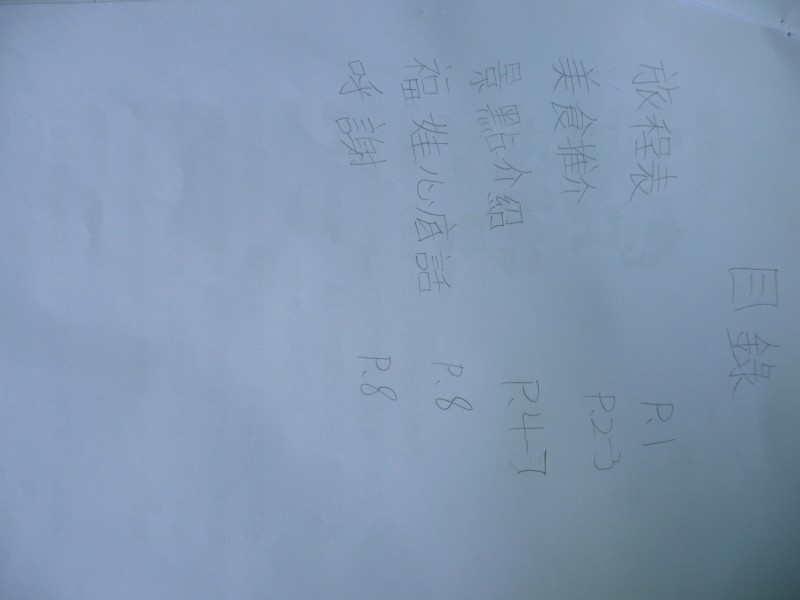 目錄
旅程表 P.1
美食推介 P.2-3
景點介紹 P.4-7
福娃心底話 P.8
呼謝 P.8